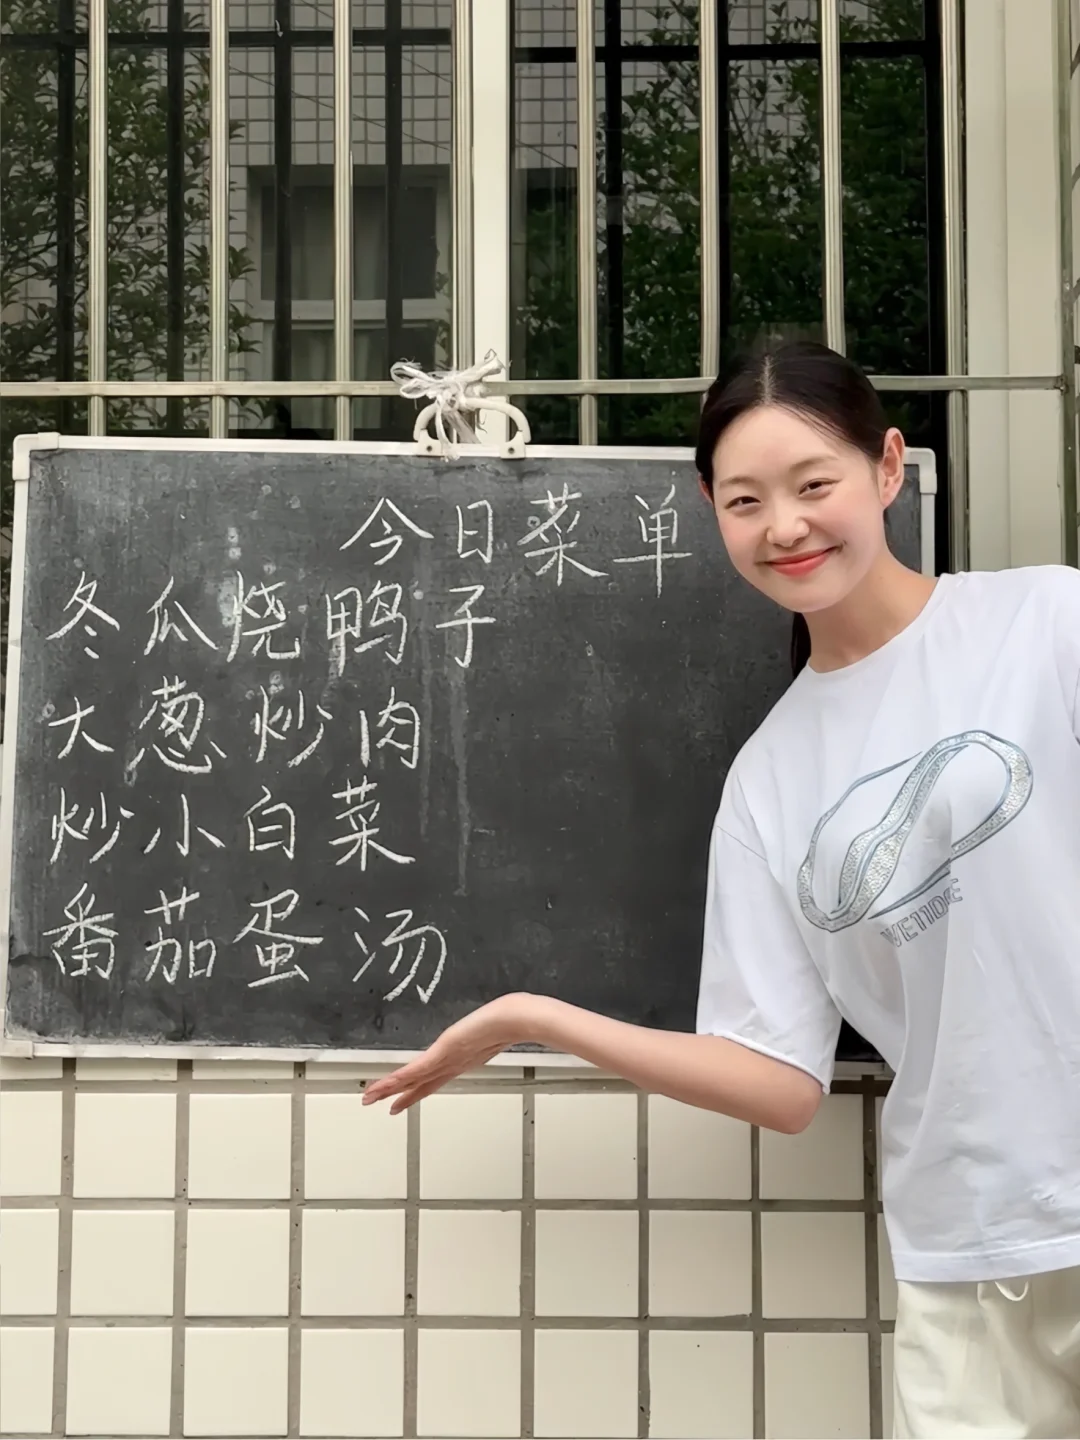 今日菜单
冬瓜烧鸭子
大葱炒肉
炒小白菜
番茄蛋汤
WE11DONE